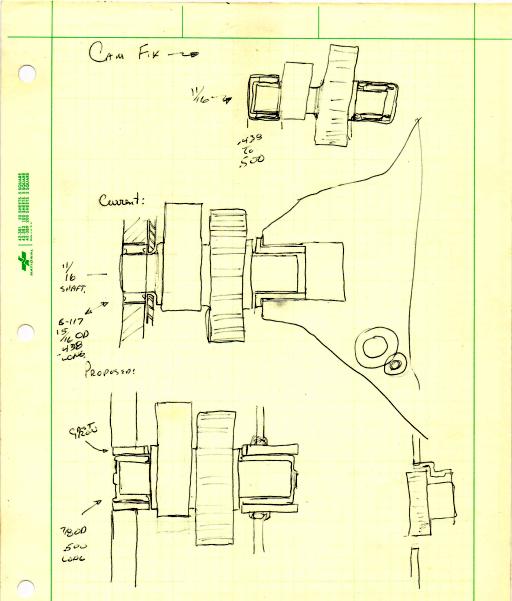 CAM FIX
11/16
.438
TO
.500
Current:
11/
16
SHAFT
B-117
15
/16 OD
.438
LONG
PROPOSED:
7/8 OD
.500
LONG
NATIONAL